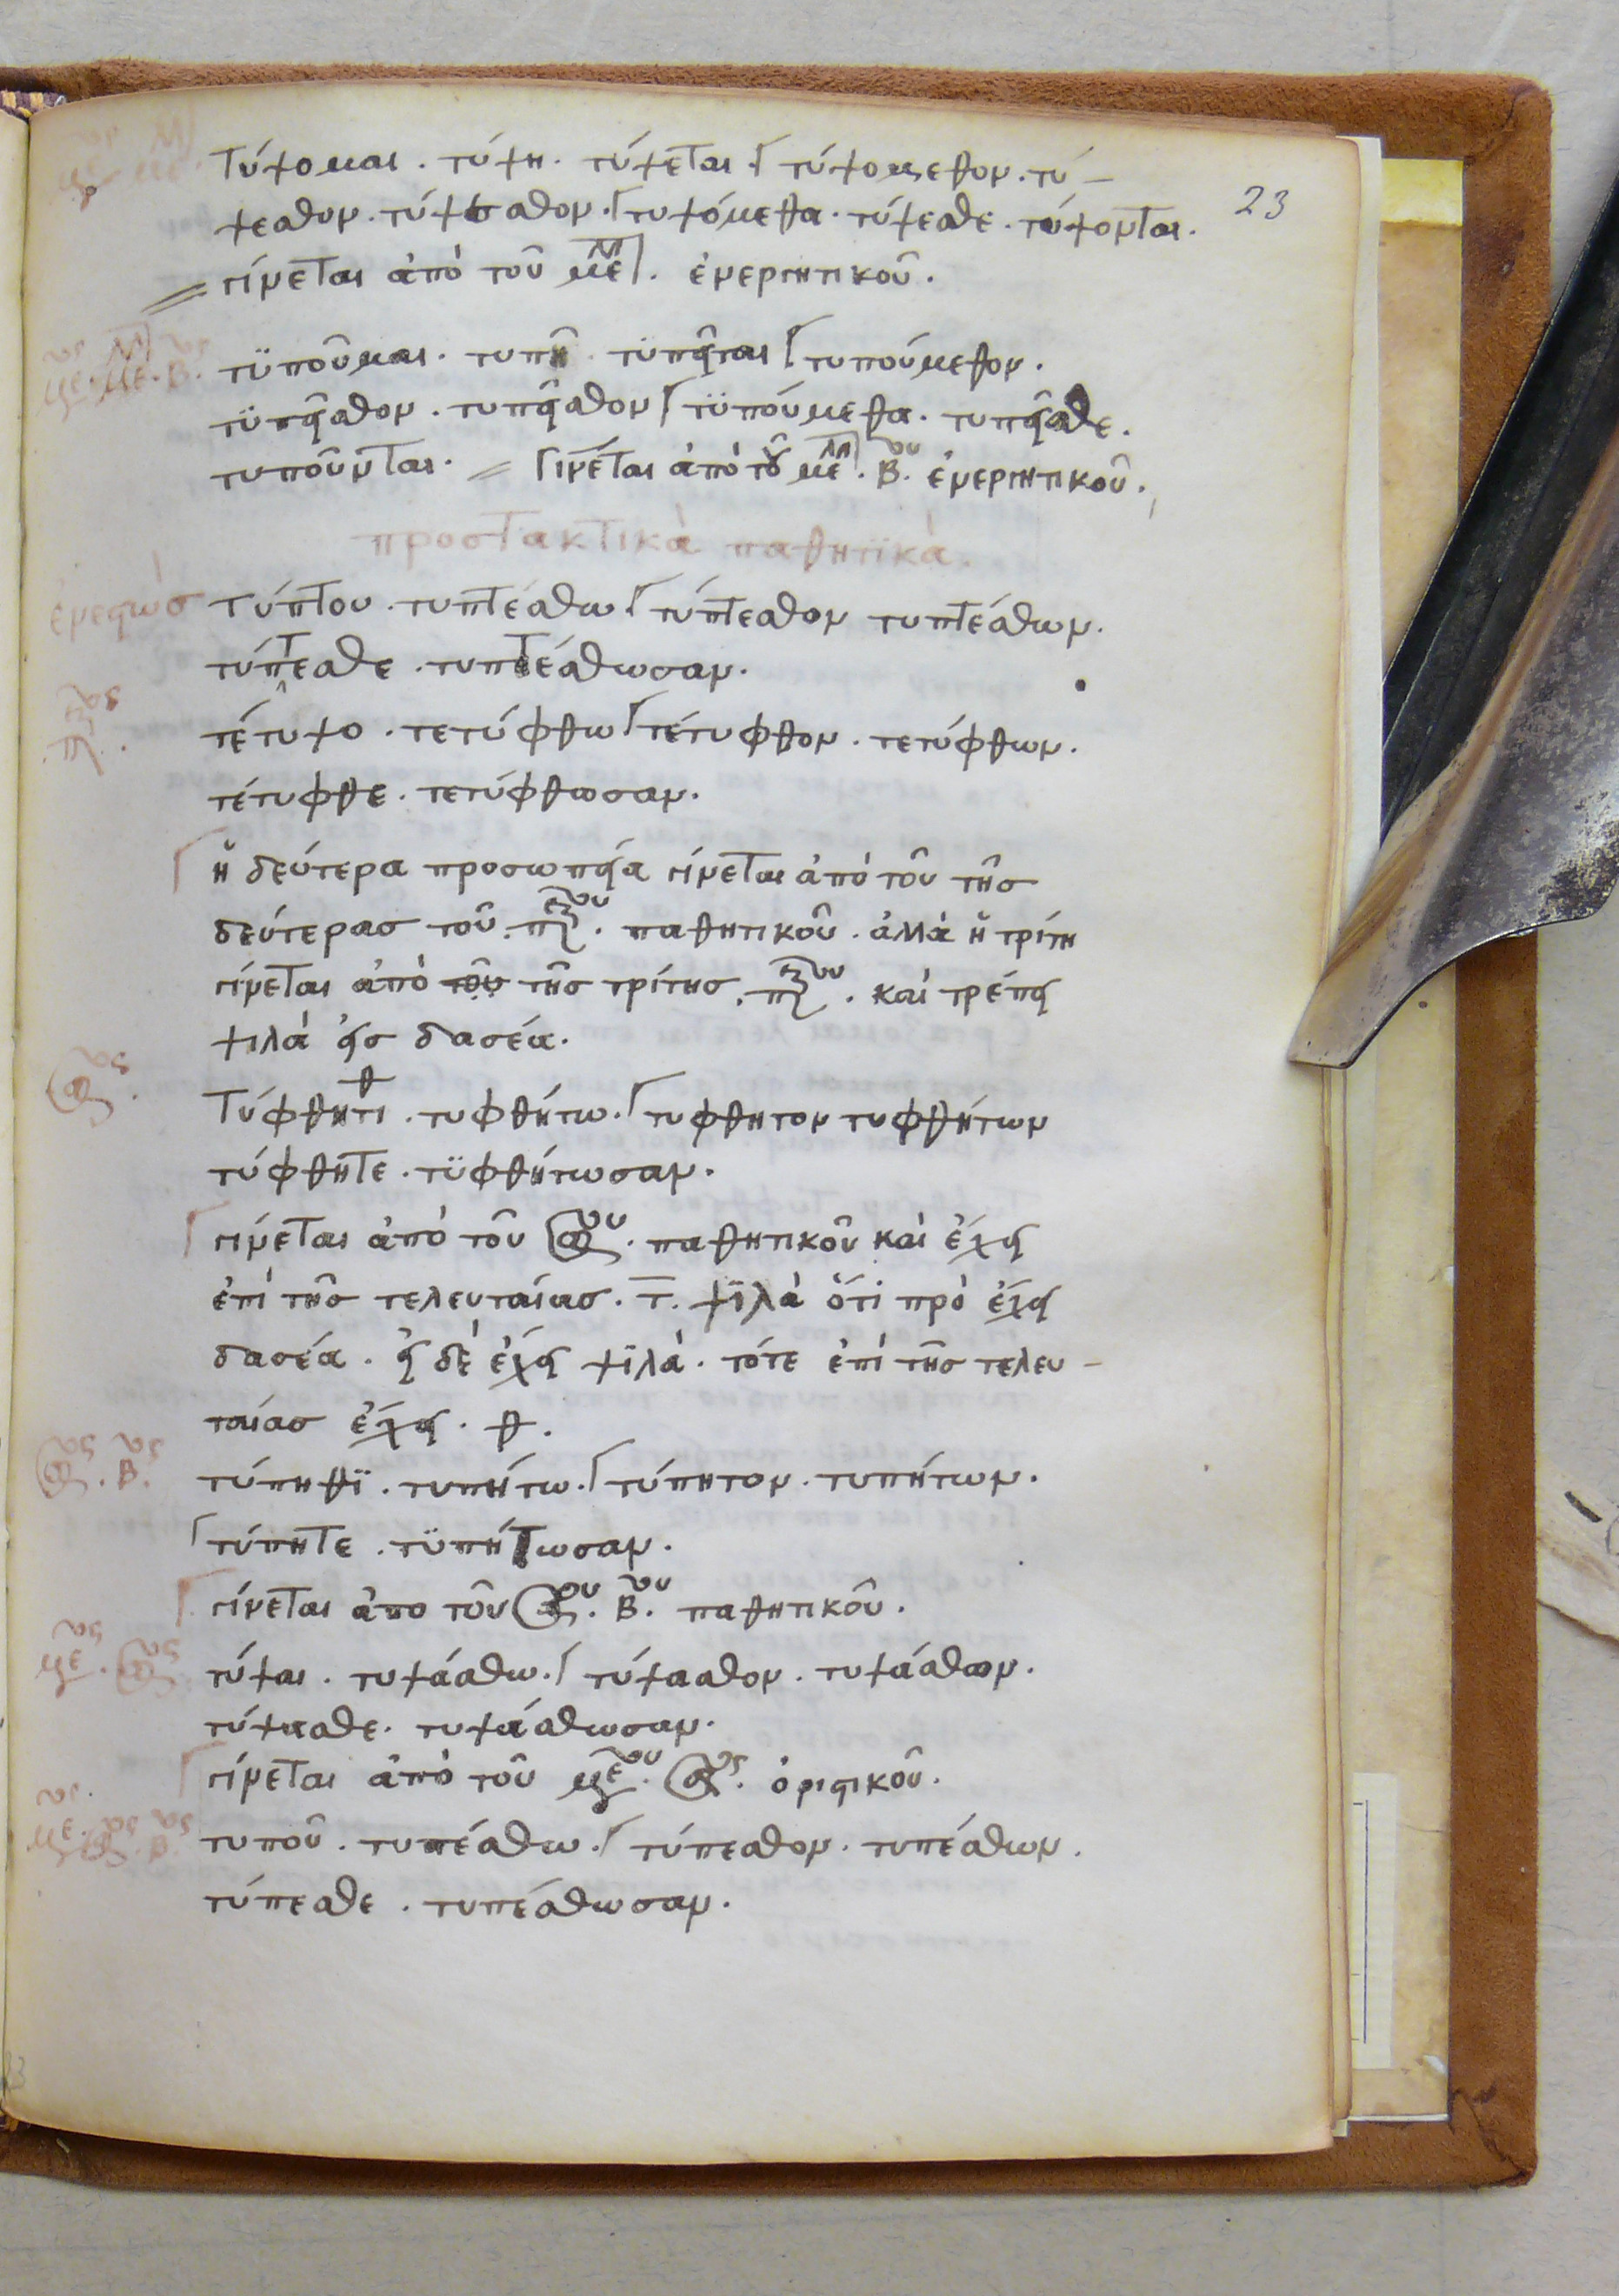 23
Τύψομαι . τύψη . τύψεται . τύψομεθον . τύ-
ψεσθον . τύψεσθον . τυψόμεθα . τύψεσθε . τύψονται .
γίνεται ἀπὸ τοῦ μελλ . ἐνεργητικοῦ .
τϋποῦμαι . τυπῆ . τϋπεῖται τυπούμεθον .
τϋπεῖσθον . τυπεῖσθον τϋπούμεθα . τυπεῖσθε .
τυποῦνται . Γινέται ἀπὸ τοῦ μελλ . Β ου . ἐνεργητικοῦ .
προστακτικὰ παθητϊκά .
ἐνεστώσ Τύπτου . τυπτέσθω . τύπτεσθον τυπτέσθων .
τύπτεσθε . τυπτέσθωσαν .
τέτυψο . τετύφθω τέτυφθον . τετύφθων .
τέτυφθε . τετύφθωσαν .
ἡ δεύτερα προσωπεία γίνεται ἀπὸ τοῦ τῆσ
δεύτερασ τοῦ παθητικοῦ . ἀλλὰ ἡ τρίτη
γίνεται ἀπὸ τῆσ τρίτησ . καὶ τρέπει
ψιλὰ εἰσ δασέα .
Τύφθητι . τυφθήτω . τυφθητον τυφθήτων
τύφθητε . τϋφθήτωσαν .
γίνεται ἀπὸ τοῦ παθητικοῦ καὶ ἔχει
ἐπὶ τῆσ τελευταίασ . τ . ψϊλὰ ὅτι πρὸ ἔχει
δασέα . εἰ δὲ ἔχει ψϊλὰ . τότε ἐπὶ τῆσ τελευ-
ταίασ ἔχει . θ .
τύπηθϊ . τυπήτω . τύπητον . τυπήτων .
τύπητε . τϋπήτωσαν .
γίνεται ἀπο τοῦ Β ου . παθητικοῦ .
τύψαι . τυψάσθω . τύψασθον . τυψάσθων .
τύψασθε . τυψάσθωσαν .
γίνεται ἀπὸ τοῦ ὁριστικοῦ .
τυποῦ . τυπέσθω . τύπεσθον . τυπέσθων .
τύπεσθε . τυπέσθωσαν .